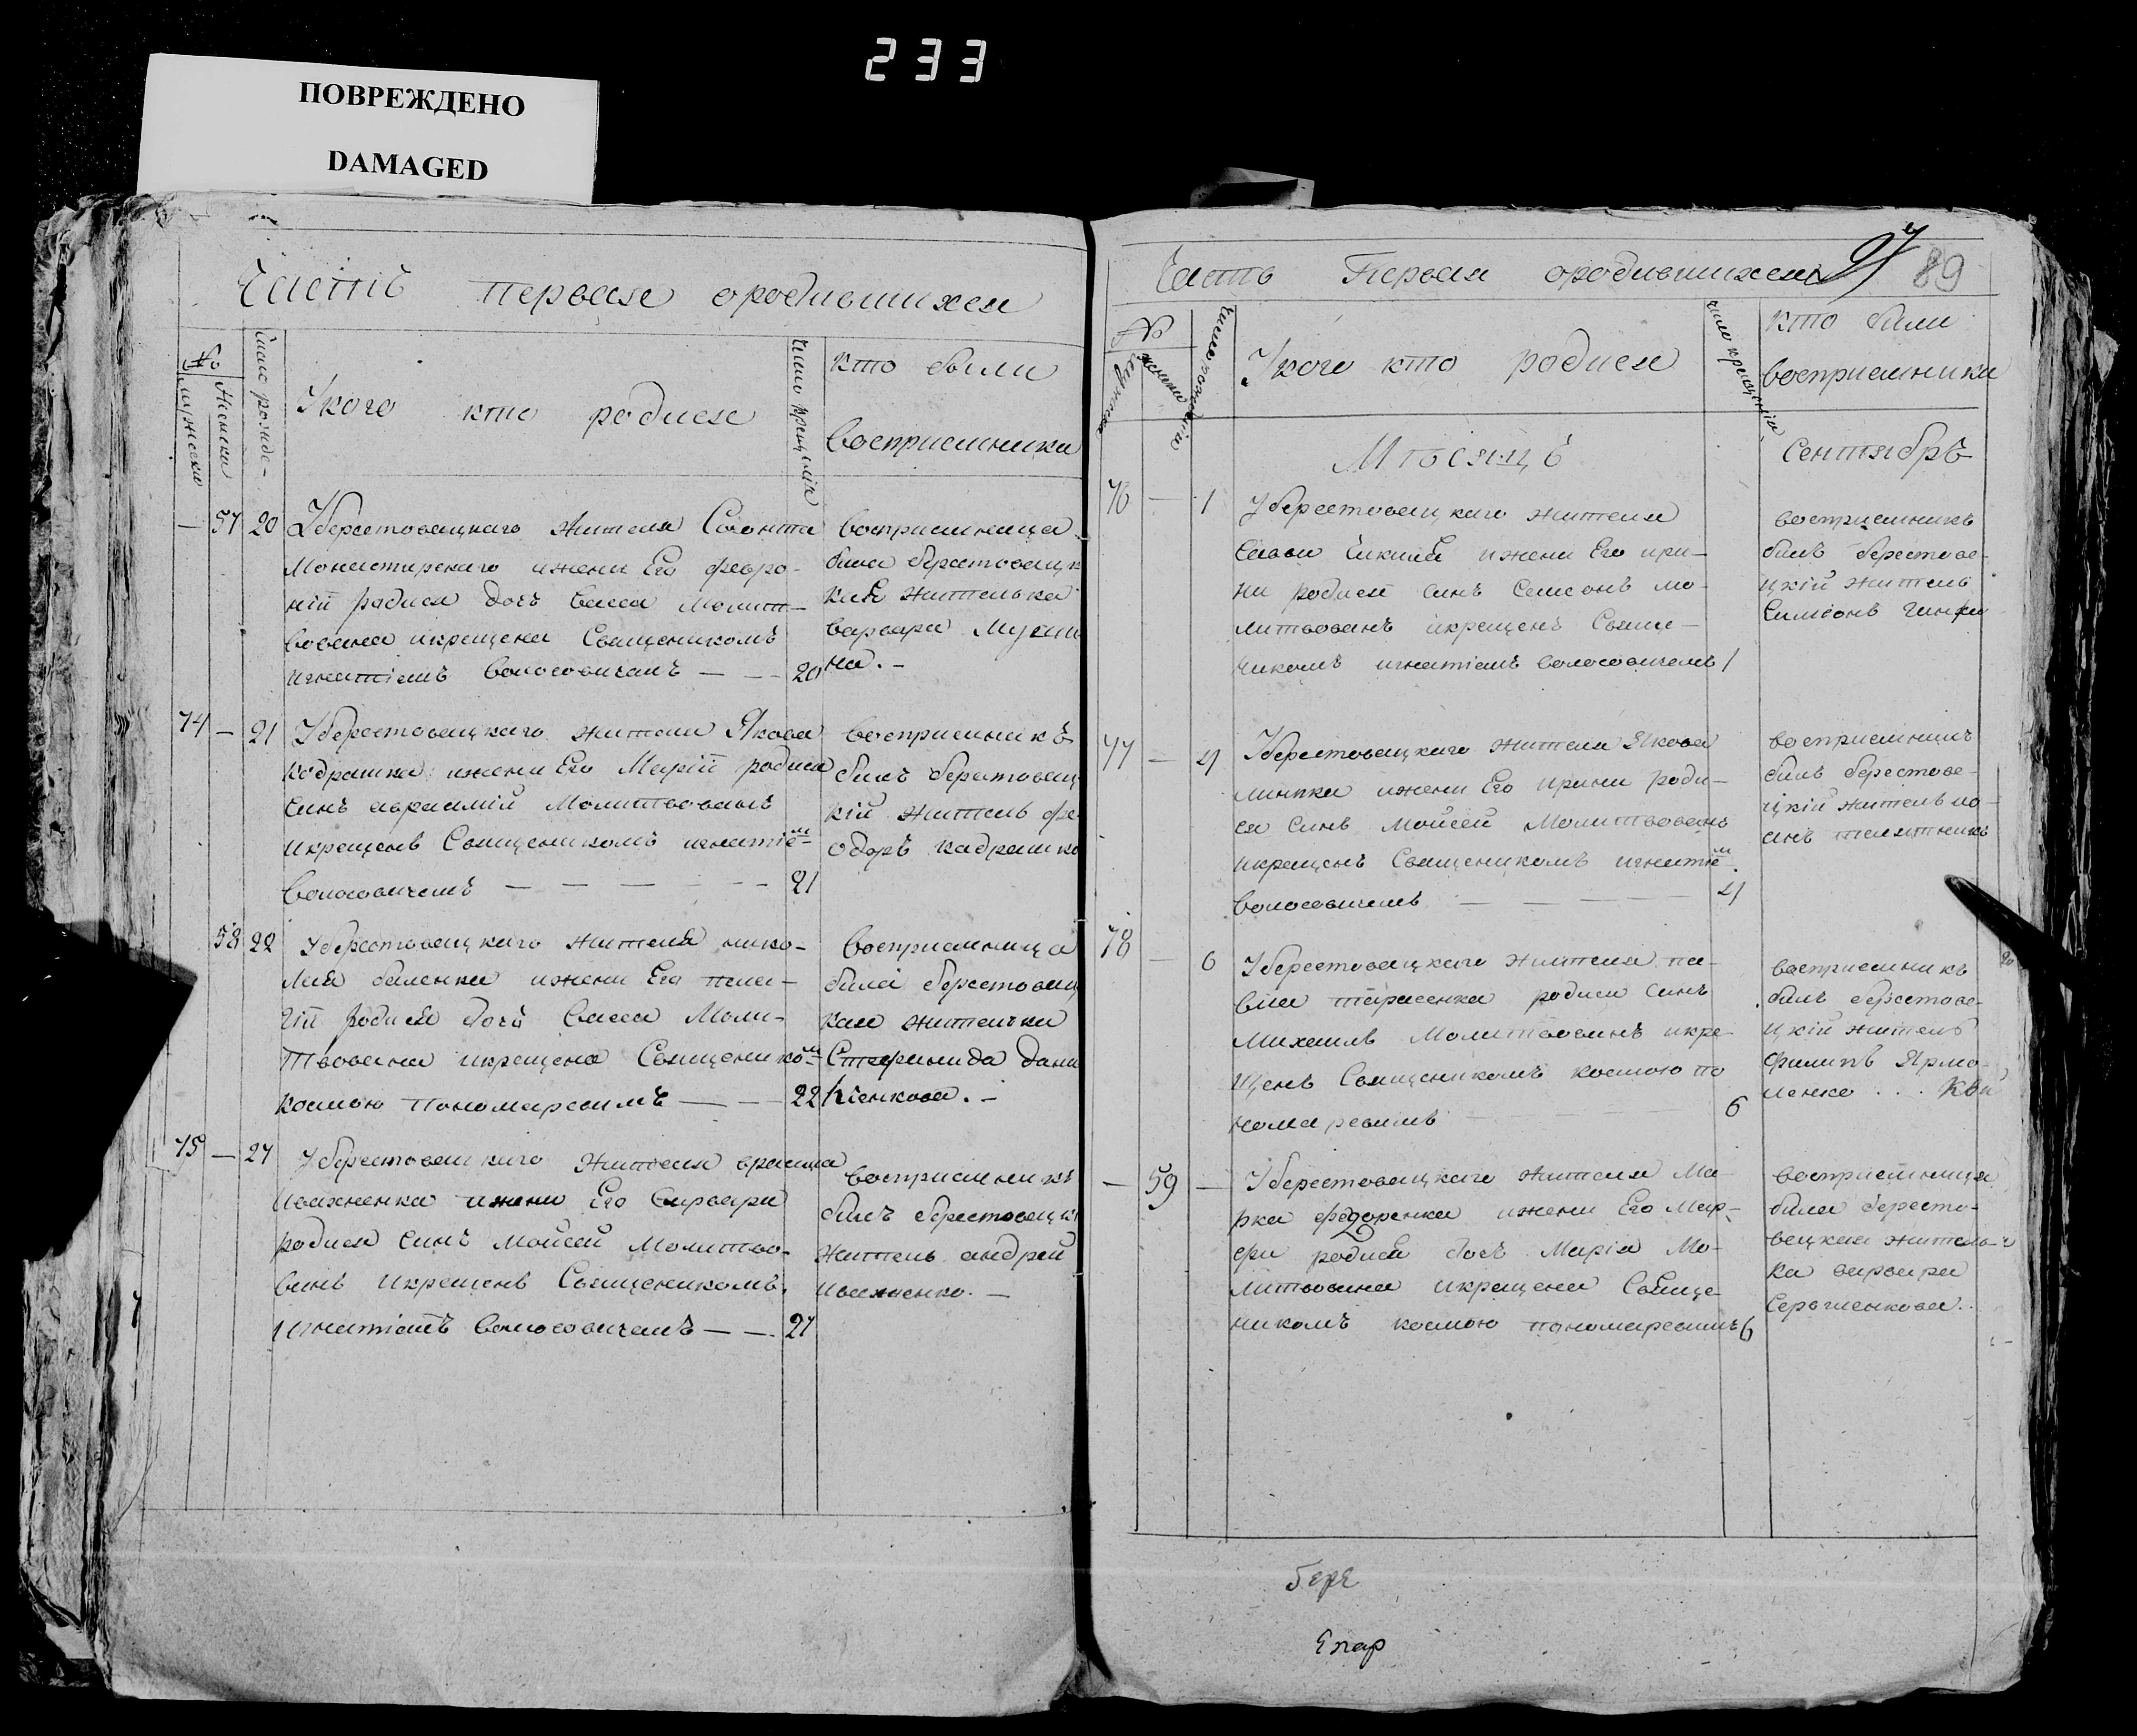 233
ПОВРЕЖДЕНО
DAMAGED
Часть первая ородившихся
№
Мужеска
Женска
Число рожде-
Укого кто родися
Число крещенія
кто были
Восприемники
— 57 20
Уберестовецкаго жителя
Монастирскаго ижени Его февро-
ній родися дочь Васса молит-
вована икрещена Священикомъ
игнатіемъ Волосовичемъ — — 20
восприемница
била берестовецк
кая жителька
варвара
на. -
74 — 21
Уберестовецкаго жителя Якова
Кадрашка ижени Его Марій родися
синъ авраамій Молитвованъ
икрещенъ Священикомъ игнатіем
Волосовичемъ — — — — — 21
восприемникъ
билъ берестовец
кій житель фе
одоръ кадрашко
58 22
Уберестовецкаго жителя нико-
лая баленка ижени Его пела-
гій родися дочъ Васса Моли-
твована икрещена Священиком
космою Пономаревимъ — — 22
Восприемница
била берестовец
кая жителька
дани
кіенкова. -
75 — 27
Уберестовецкаго жителя
Ивахненка ижени Его Варвари
родися синъ Мойсей Молитво-
ванъ икрещенъ Священикомъ
игнатіемъ Волосовичемъ — — 27
восприемникъ
билъ берестовецк
житель андрей
ивахненко. —
89
Часть Первая ородившихся
№
мужеска
женска
Число рожденія
Укого кто родися
число крещенія
кто били
восприемники
Мѣсяцъ Сентябрь
76 — 1
Уберестовецкаго жителя
Сави ижени Его ири-
ни родися синъ Семеонъ мо-
литвованъ икрещенъ Свяще-
никомъ игнатіемъ Волосовичемъ 1
восприемникъ
билъ берестове-
цкій житель
Симеонъ
77 — 4
Уберестовецкаго жителя Якова
ижени Его Ирини роди-
ся синъ Мойсей Молитвованъ
икрещенъ Священикомъ игнатіем
Волосовичемъ — — — — 4
восприемникъ
билъ берестове-
цкій житель ио-
анъ
78 — 6
Уберестовецкаго жителя па-
вла тарасенка родися синъ
Михаилъ Молитвованъ икре-
щенъ Священикомъ космою По
номаревимъ 6
восприемникъ
билъ берестове-
цкій житель
Филипъ Ярмо-
ленко
— 59 —
Уберестовецкаго жителя Ма-
рка федоренка ижени Его Мар-
фи родися дочъ Марія Мо-
литвована икрещена Свяще-
никомъ космою пономаревимъ 6
восприемница
била бересто-
вецкая житель-
ка варвара
Сергиенкова.
бере
Епар